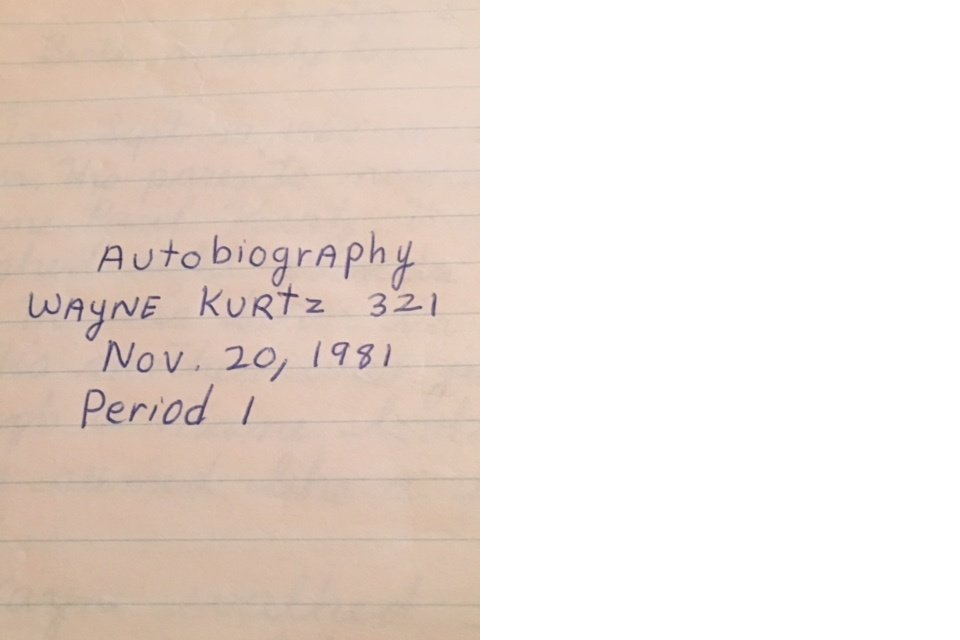 Autobiography
WAYNE KURTZ 321
Nov. 20, 1981
Period 1